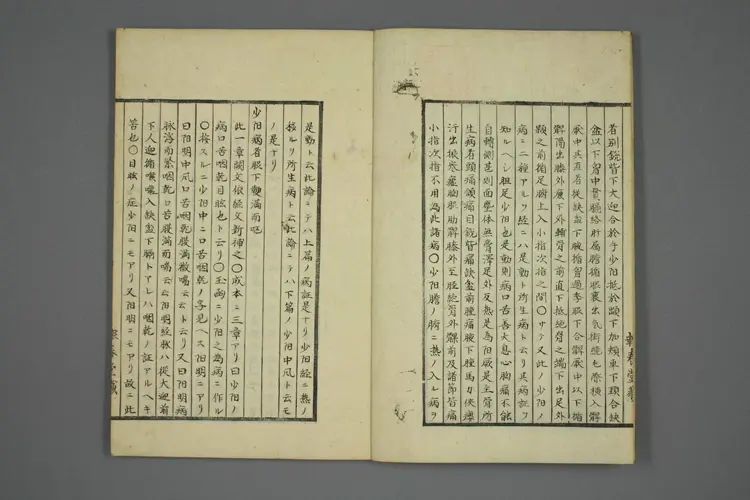 者別鋭眥下大迎合於手少陽抵於䪼下加頬車下頸合缺
盆以下胸中貫膈絡肝属膽循脇裏出気街繞毛際横入髀
厭中其直者従缺盆下腋循胸過季脇下合髀厭中以下循
髀陽出膝外廉下外輔骨之前直下抵絶骨之端下出足外
踝之前循足跗上入小指次指之間〇サテ又此ノ少陽ノ
病ニ二種アルソ経ニハ是動ト所生病トソ其病証ヲ
知ルヘシ胆足少陽也是動則病口苦善大息心胸痛不能
自轉側甚則面塵体無膏澤足外反熱是為陽厥是主骨所
生病者頭痛頷痛目鋭眥痛缺盆前腫痛腋下腫馬刀侠癭
汗出振寒瘧胸肋髀膝外至脛絶骨外髁前及諸節皆痛
小指次指不用為此諸病〇少陽膽ノ腑ニ熱ノ入レ病ヲ
是動ト云此論ニテハ上篇ノ病証是ナリ少陽経ニ熱ノ
移ルリ所生病ト云此論ニテハ下篇ノ少陽中風ト云モ
ノ是ナリ
少陽病者脇下滿而嘔
此一章闕文依経文新補之〇成本ニ三章アリ曰少陽ノ
病口苦咽乾目眩也ト云リ〇玉函ニ少陽之為病ニ作ル
〇按スルニ少陽中ニ口苦咽乾ノ字見ヘス陽明ニアリ
曰陽明中風口苦咽乾腹滿微喘云云ト云リ又曰陽明病
脉浮而緊咽乾口苦腹滿而喘云云陽明経脉ハ従大迎前
下人迎循喉嚨入缺盆下膈トアレハ咽乾ノ証アルヘキ
筈也〇目眩ノ症少陽ニモアリ又陽明ニモアリ故ニ此